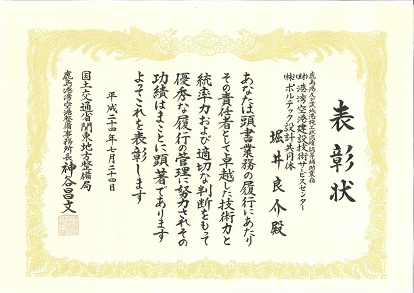 表彰状
鹿島港湾空港整備事務所
(財)港湾空港建設技術サービスセンター
(株)ポルテック設計共同体
堀井良介殿
あなたは頭書業務の履行にあたり
その責任者として卓越した技術力と
統率力および適切な判断をもって
優秀な履行の管理に努力されその
功績はまことに顕著であります
よってこれを表彰します
平成二十四年七月二十四日
国土交通省関東地方整備局
鹿島港湾空港整備事務所長 神谷昌文